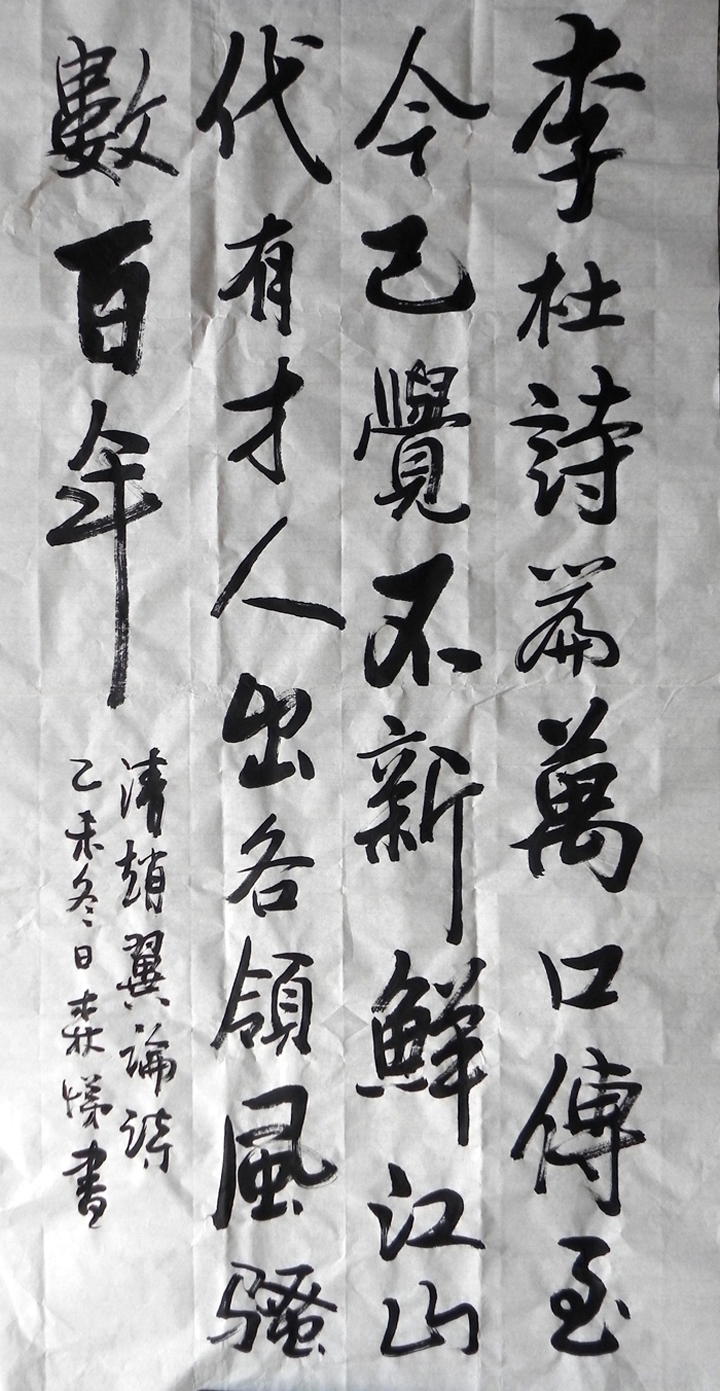 李杜詩篇萬口傳至
今已覺不新鮮江山
代有才人出各領風騷
數百年
清趙翼論詩
乙未冬日森悌書